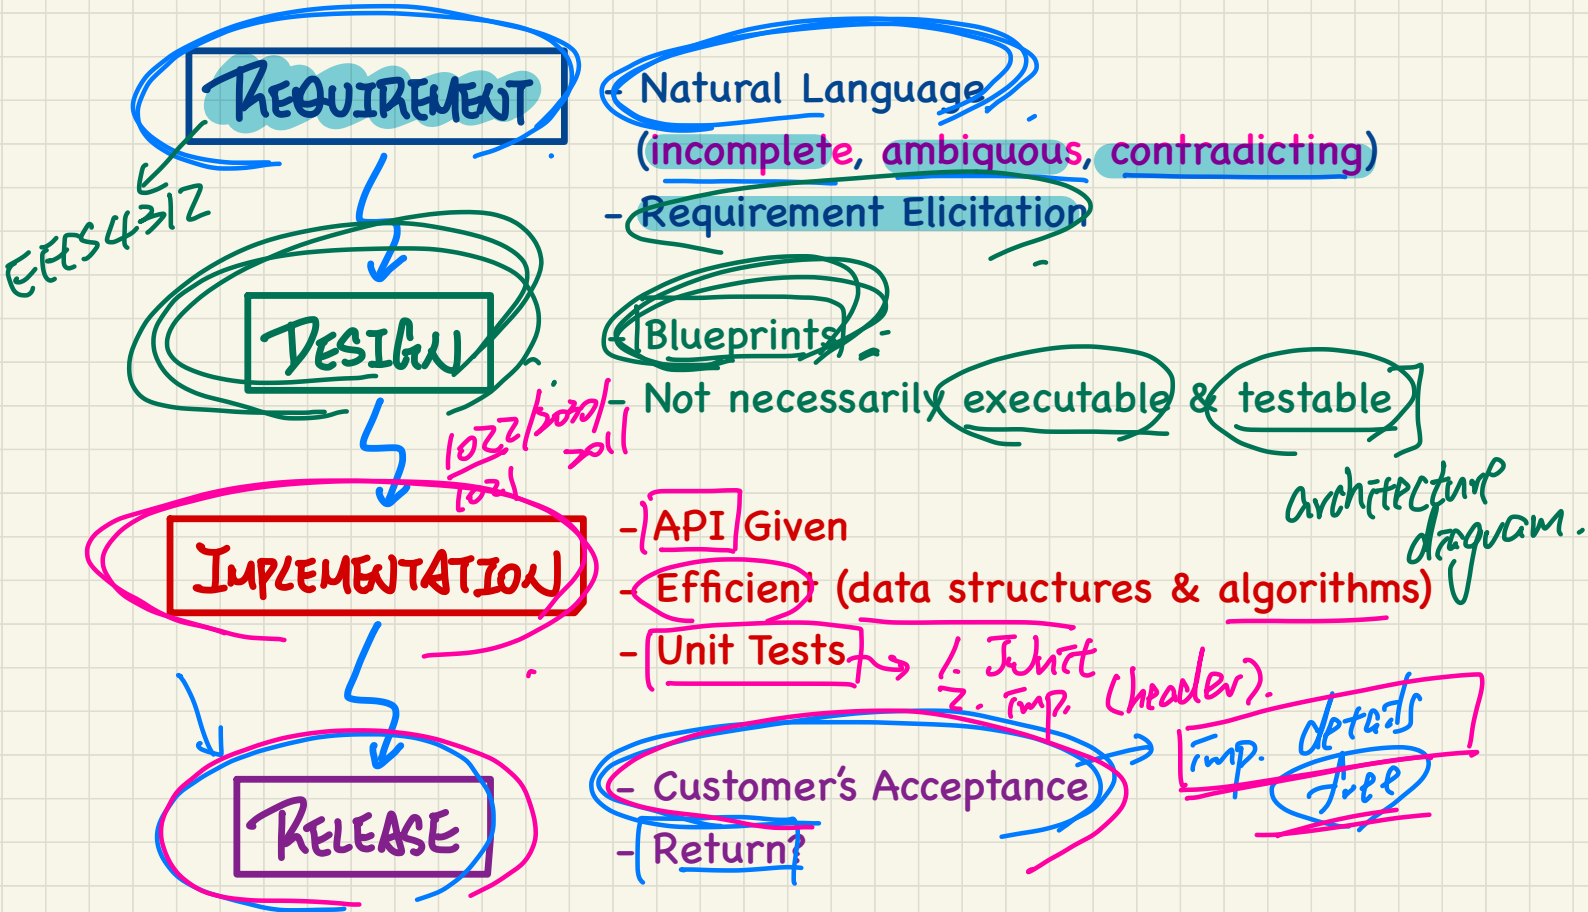 REQUIREMENT
- Natural Language
(incomplete, ambiquous, contradicting)
- Requirement Elicitation
EECS4312
DESIGN
- Blueprints
- Not necessarily executable & testable
architecture
diagram.
1022/2030/
2011
IMPLEMENTATION
- API Given
- Efficient (data structures & algorithms)
- Unit Tests
1. JUnit
2. imp. (header).
imp. details
free
RELEASE
- Customer's Acceptance
- Return?